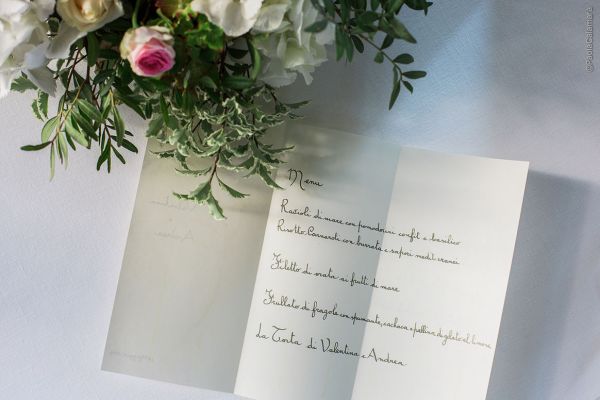 Menu
Ravioli di mare con pomodorini confit e basilico
Risotto Carnaroli con burrata e sapori mediterranei
Filetto di orata ai frutti di mare
Frullato di fragole con spumante, cachaca e pallina di gelato al limone
La Torta di Valentina e Andrea
Andrea
©PaolaColaMaria